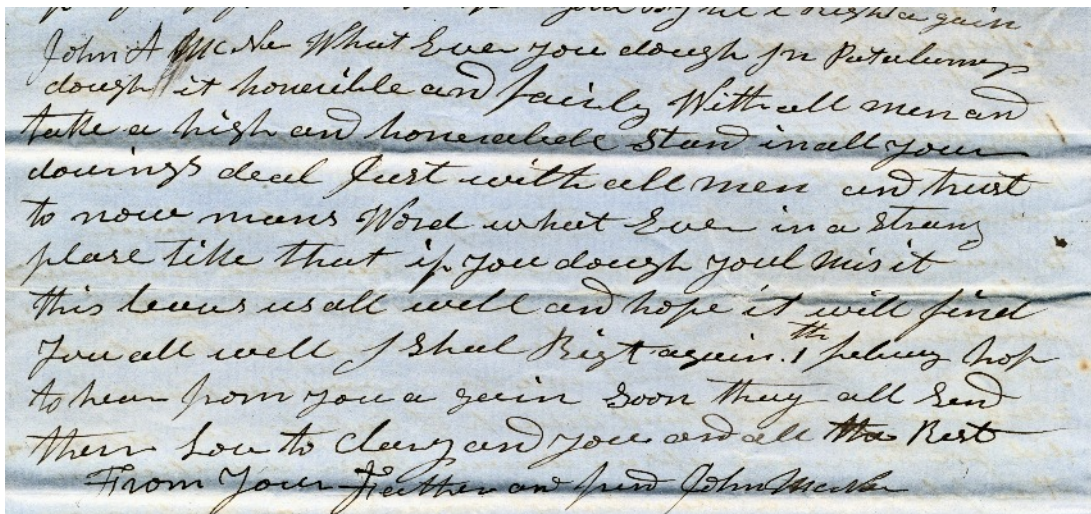 again
John A McNee What Ever you dough in
dough it honerible and fairly With all men and
take a high and honerabele Stand in all your
douings deal Just with all men and trust
to now mans Word what Ever in a Strang
plase like that if you dough youl mis it
this leaves us all well and hope it will find
You all well I Shal Right again 1th hop
to hear from you a gain Soon thay all Send
ther Lov to and you and all the Rest
From Your Father and John McNee